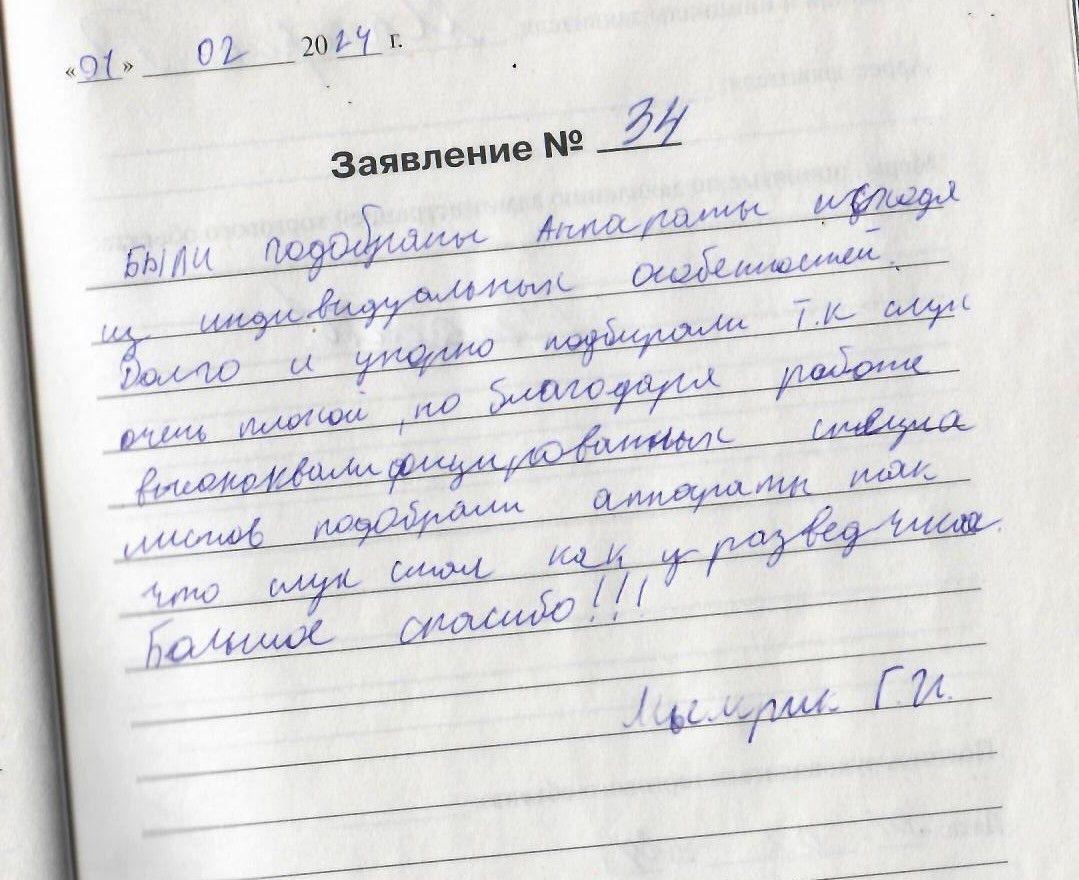 «01» 02 2024 г.
Заявление № 34
Были подобраны Аппараты исходя
из индивидуальных особенностей.
Долго и упорно подбирали т.к слух
очень плохой, но благодаря работе
высококвалифицированных специа
листов подобрали аппараты так
что слух стал как у разведчика.
Большое спасибо!!!
Мымрик Г.И.